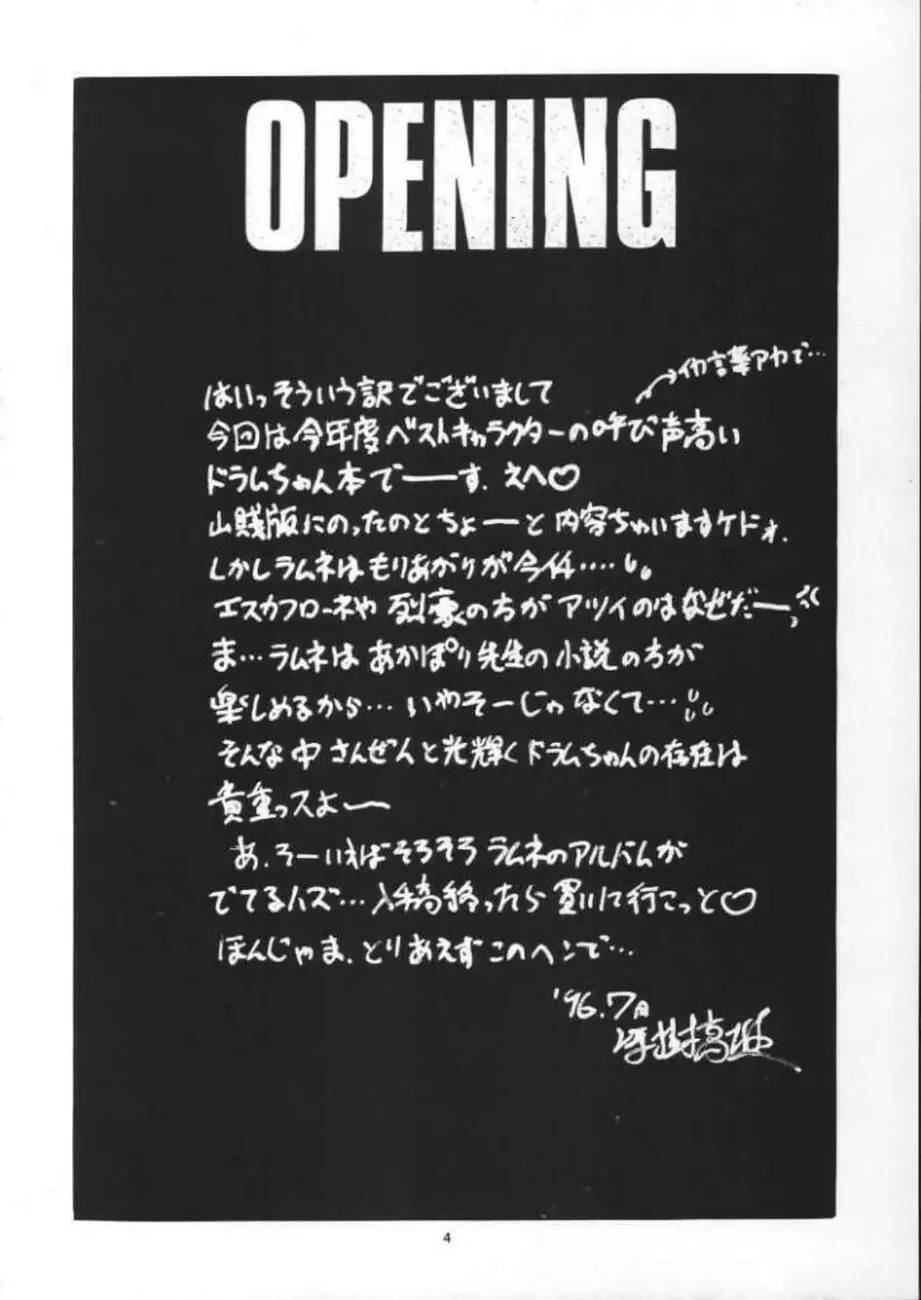 OPENING
→イカ言葉アカで…
はいっそういう訳でございまして
今回は今年度ベストキャラクターの呼び声高い
ドラムちゃん本でーーす.えへ♡
山賤版にのったのとちょーーと内容ちゃいますケドォ.
しかしラムネはもりあがりが今イチ….
エスカフローネや烈豪の方がアツイのはなぜだー
ま…ラムネはあかほり先生の小説の方が
楽しめるから…いやそーじゃなくて…
そんな中さんぜんと光輝くドラムちゃんの存在は
貴重っスよー
あ.そーいえばそろそろラムネのアルバムが
でてるハズ…入稿終ったら買いに行こっと♡
ほんじゃま.とりあえずこのヘンで…
'96.7月
4